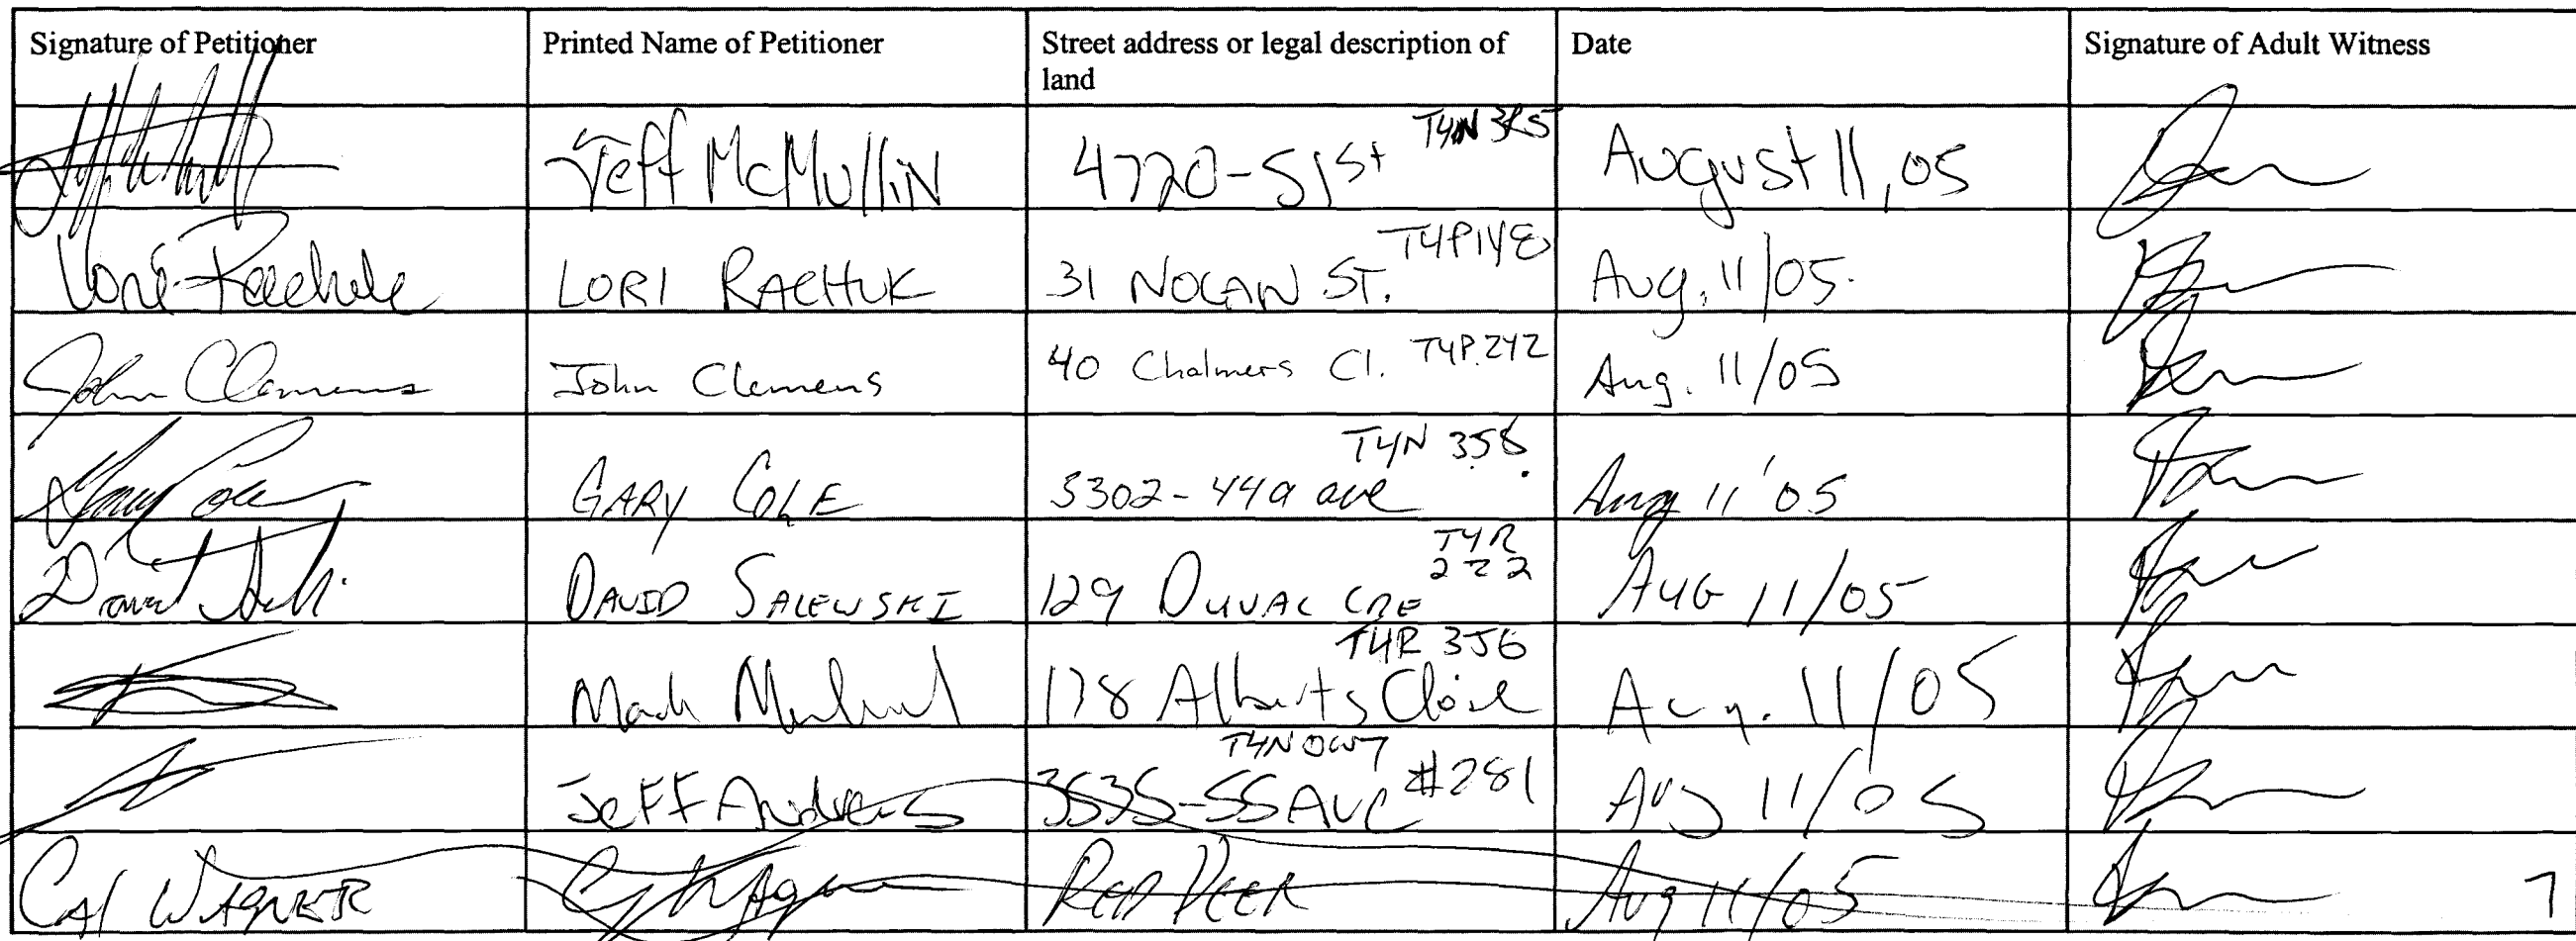 Signature of Petitioner Printed Name of Petitioner Street address or legal description of land Date Signature of Adult Witness
Jeff McMullin 4720-51 St T4N 3R5 August 11, 05
LORI RACHUK 31 NOLAN ST. T4P1Y8 Aug. 11/05.
John Clemens John Clemens 40 Chalmers Cl. T4P.2Y2 Aug. 11/05
Gary Cole GARY COLE 3302-44a ave T4N 3S8 Aug 11 '05
David DAVID SALEWSKI 129 DUVAL CRE T4R 2Z2 AUG 11/05
Mark 178 Alberts Close T4R 3J6 Aug. 11/05
Jeff Andrews 3535-55 Ave #281 T4N0W7 Aug 11/05
CAL WAGNER RED DEER Aug 11/05
7